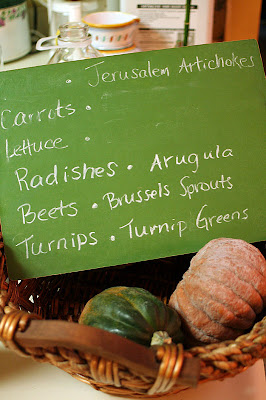 • Jerusalem Artichokes
Carrots •
Lettuce •
Radishes • Arugula
Beets • Brussels Sprouts
Turnips • Turnip Greens